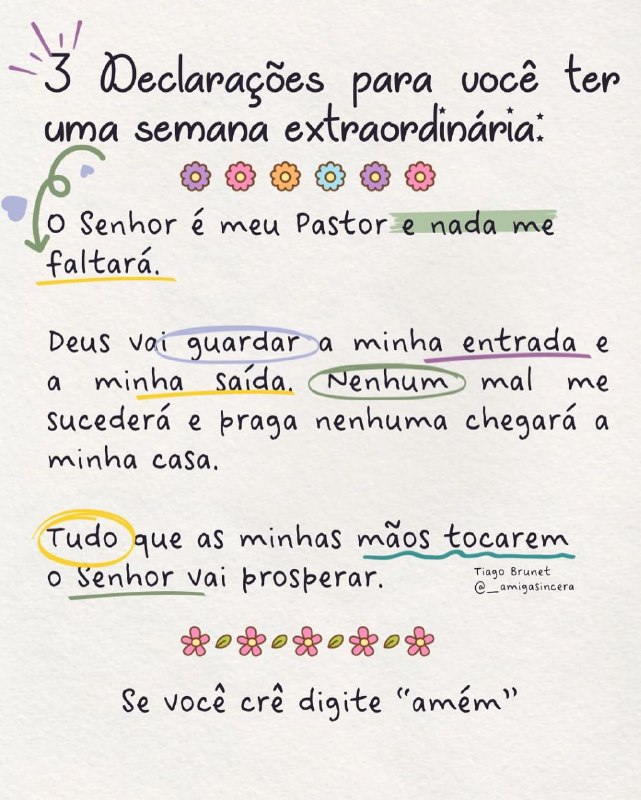 3 Declarações para você ter
uma semana extraordinária:
O Senhor é meu Pastor e nada me
faltará.
Deus vai guardar a minha entrada e
a minha saída. Nenhum mal me
sucederá e praga nenhuma chegará a
minha casa.
Tudo que as minhas mãos tocarem
o Senhor vai prosperar.
Tiago Brunet
@__amigasincera
Se você crê digite “amém”